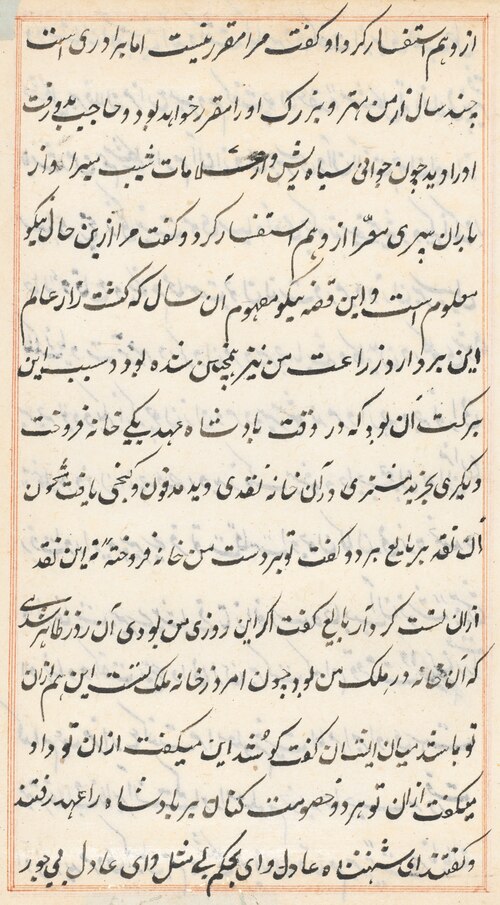 ازو هم استفسار کرد او گفت مرا مقرر نیست اما برادری است
چند سال از من مهتر و بزرگ او را مقرر خواهد بود و حاجب بدو رفت
او را دید چون جوانی سیاه ریش و از علامات شیب سیر اوار
باران پیری معرّا ازو هم استفسار کرد و گفت مرا ازین حال نیکو
معلوم است و این قصه نیکو مفهوم آن سال که کشت زار عالم
این بر دارد زراعت من نیز همچنین شده بود و سبب این
برکت آن بود که در وقت پادشاه عهد یکی خانه فروخت
دیگری بخرید مشتری در آن خانه نقدی دید مدفون و گنجی یافت مشحون
آن نقد بر بایع برد و گفت تو بر دست من خانه فروختهٔ نه این نقد
ازان تست کرد آر بایع گفت اگر این روزی من بودی آن روز ظاهر شدی
که آن خانه در ملک من بود چون امروز خانه ملک تست این هم ازان
تو باشد میان ایشان گفت گو شد این میگفت ازان تو و او
میگفت ازان تو هر دو خصومت کنان بر پادشاه عهد رفتند
و گفتند ای شهنشاه عادل و ای بحکم بی مثل و ای عادل بی جور